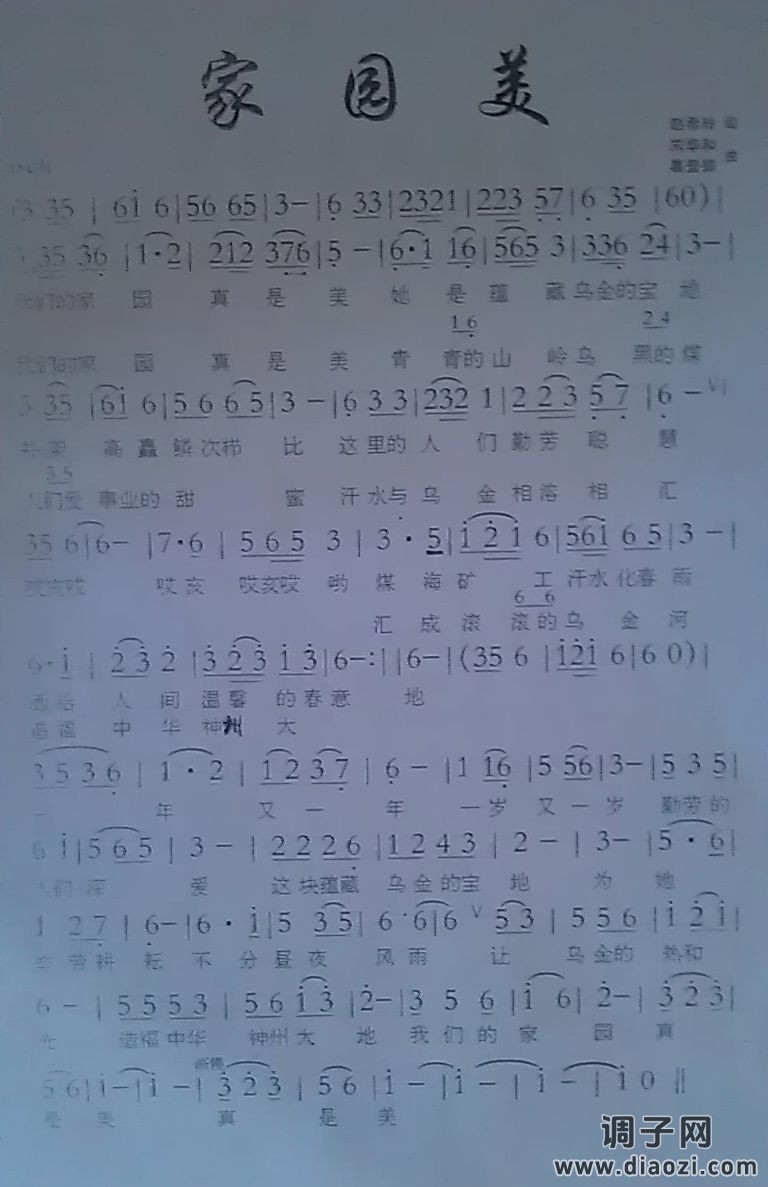 家园美
词
曲
3 35 | 61̇ 6 | 56 65 | 3 – | 6̣ 33 | 2321 | 223 5̣7̣ | 6̣ 35 | 60) |
35 36̣ | 1·2 | 212 37̣6̣ | 5̣ – | 6̣·1 16̣ | 565 3 | 336 24 | 3 – |
我们的家 园 真 是 美 她 是 蕴 藏乌金的宝 地
1 6̣ 2 4
我们的家 园 真 是 美 青 青的山 岭乌 黑的煤
3 35 | 61̇ 6 | 56 65 | 3 – | 6̣ 33 | 232 1 | 2 23 5̣7̣ | 6̣ – V |
井架 高矗鳞次栉 比 这里的人 们勤劳聪 慧
3 5
人们爱事业的甜 蜜 汗水与乌 金相溶相 汇
35 6 | 6 – | 7·6 | 565 3 | 3 · 5 | 1̇2̇1̇ 6 | 561̇ 65 | 3 – |
哎亥哎 哎亥 哎亥哎 哟 煤 海矿 工汗水化春雨
6 6
汇 成滚 滚的乌 金 河
6·1̇ | 2̇3̇ 2̇ | 3̇2̇3̇ 1̇3̇ | 6 – :| | 6 – | (35 6 | 1̇2̇1̇ 6 | 6 0) |
洒给 人 间温馨 的春意 地
造福 中 华神州 大
3536̣ | 1 · 2 | 1237̣ | 6̣ – | 1 16̣ | 5 56 | 3 – | 5 3 5 |
一 年 又 一 年 一岁又一岁 勤劳的
6 1̇ | 565 | 3 – | 2226̣ | 1243 | 2 – | 3 – | 5 · 6 |
人们 深 爱 这块蕴藏 乌金的宝 地 为 她
1 27̣ | 6̣ – | 6 · 1̇ | 5 35 | 6 · 6 | 6 V 53 | 556 | 1̇2̇1̇ |
辛劳耕 耘 不 分昼夜 风雨 让 乌金的 热和
6 – | 5553 | 56 1̇3̇ | 2̇ – | 3 5 6 | 1̇ 6 | 2̇ – | 3̇2̇3̇ |
光 造福中华 神州大 地 我们的 家 园 真
56 | 1̇ – | 1̇ – | 3̇2̇3̇ | 56 | 1̇ – | 1̇ – | 1̇ – | 1̇0 ||
是 美 真 是 美
调子网
www.diaozi.com